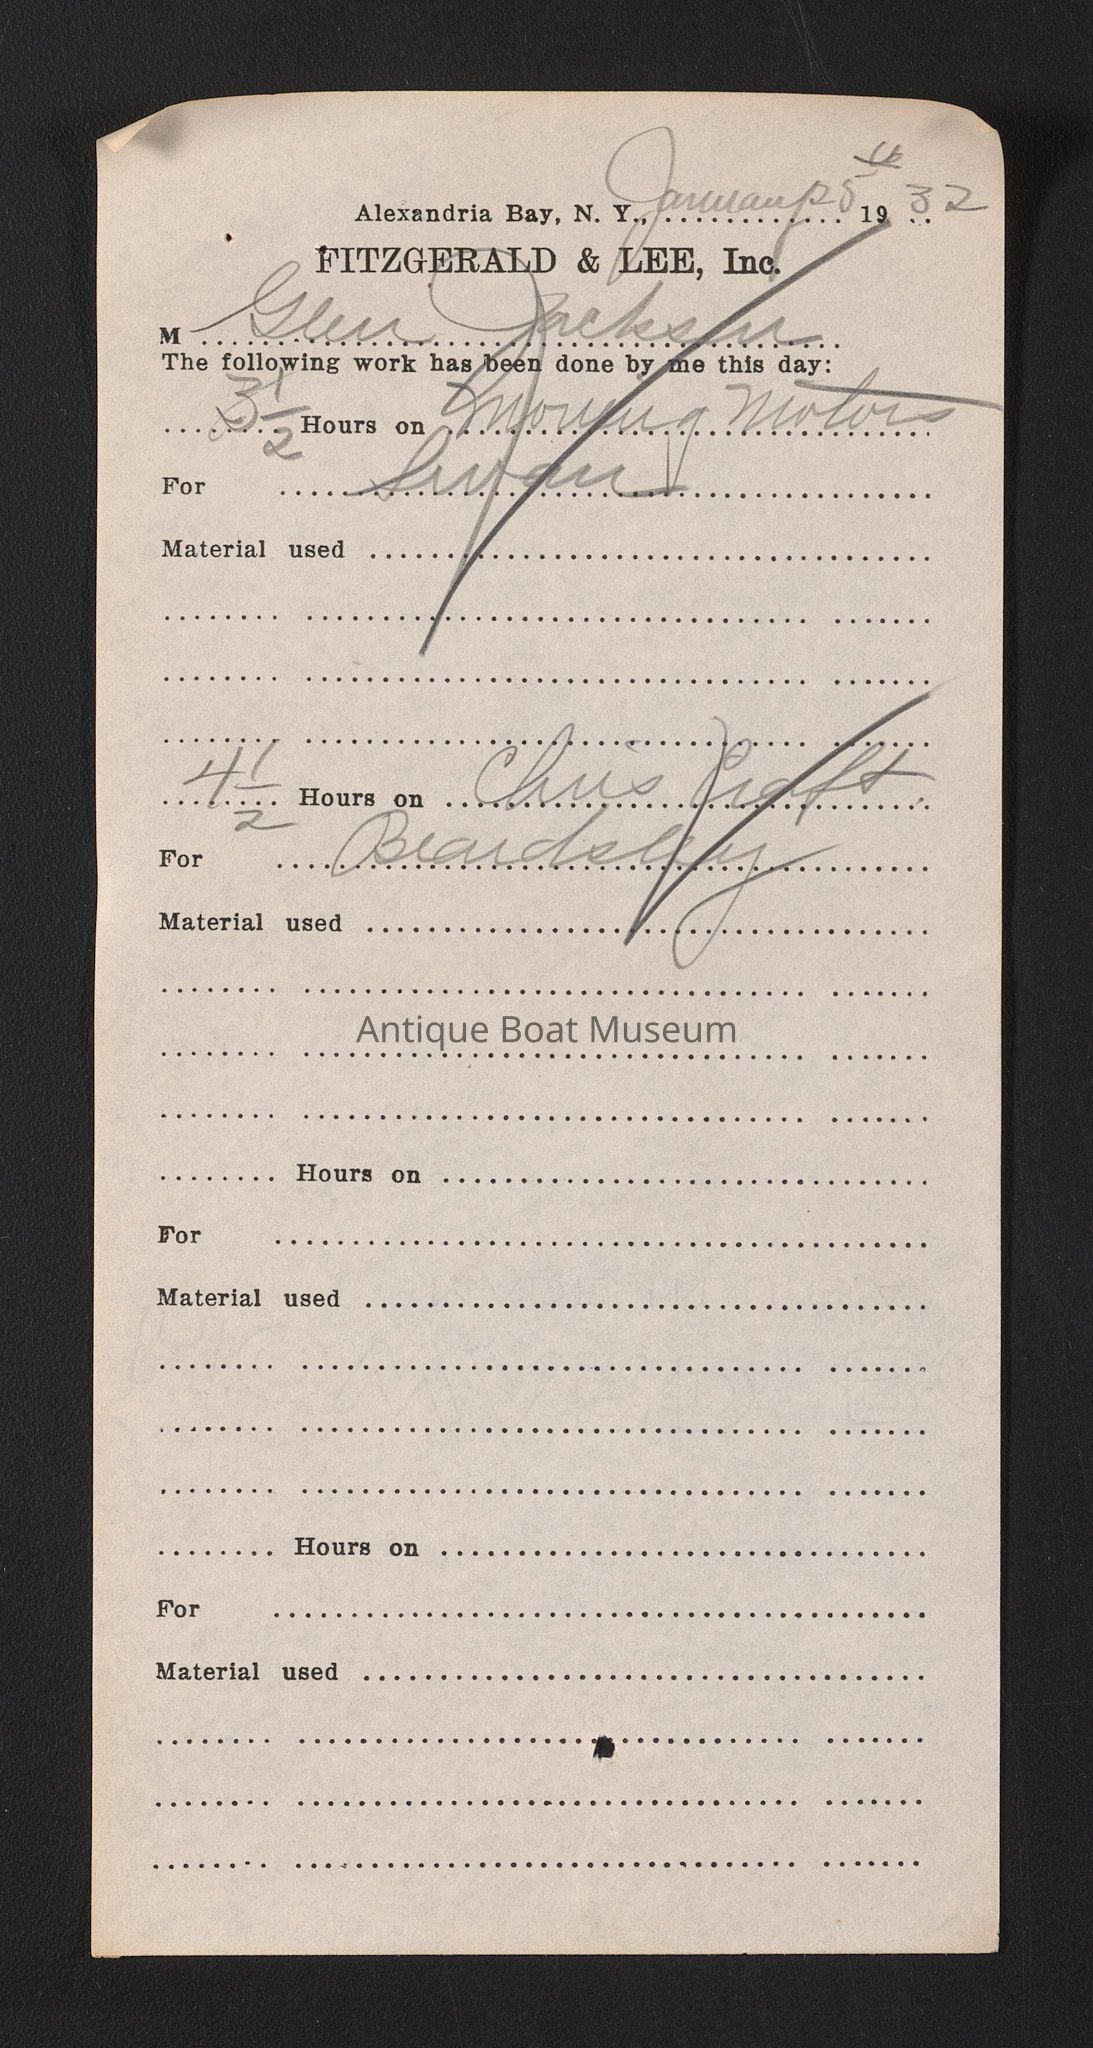 Alexandria Bay, N. Y., January 25th 1932
FITZGERALD & LEE, Inc.
M Glen Jackson
The following work has been done by me this day:
3 1/2 Hours on moving motors
For
Material used
4 1/2 Hours on Chris Craft
For Beardsley
Material used
Antique Boat Museum
Hours on
For
Material used
Hours on
For
Material used